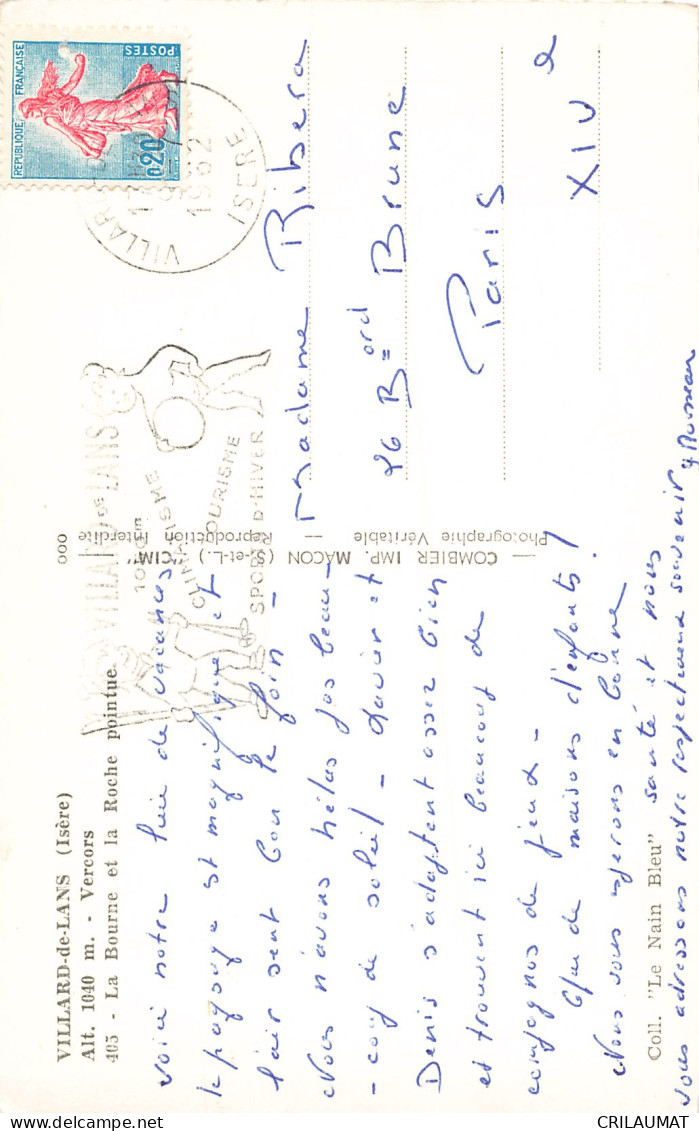 VILLARD-de-LANS (Isère)
Alt. 1040 m. - Vercors
405 - La Bourne et la Roche pointue.
voici notre lieu de vacances
le paysage est magnifique et
l'air sent bon le foin -
Nous n'avons hélas pas beau-
- coup de soleil - Xavier et
Denis s'adaptent assez bien
et trouvent ici beaucoup de
compagnons de jeux -
Que de maisons d'enfants !
Nous vous espérons en bonne
santé et nous
vous adressons notre respectueux souvenir
Coll. "Le Nain Bleu"
COMBIER IMP. MACON (S.-et-L.) "CIM"
Photographie Véritable — Reproduction Interdite
VILLARD DE LANS
CLIMATISME
TOURISME
SPORTS D'HIVER
REPUBLIQUE FRANÇAISE
POSTES
0,20
VILLARD-D
1962
ISERE
Madame Ribera
26 Bord Brune
Paris
XIV e
CRILAUMAT